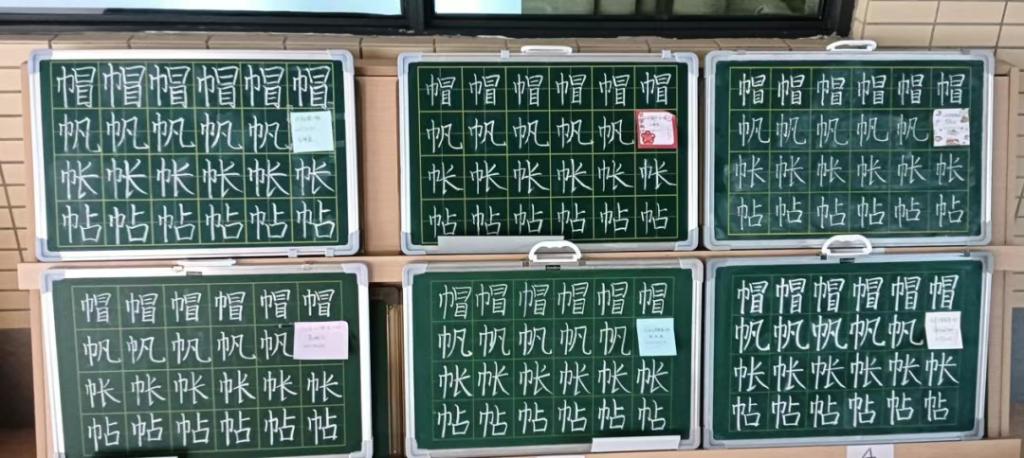 帽帽帽帽帽帽
帆帆帆帆帆
帐帐帐帐帐帐
帖帖帖帖帖帖
帽帽帽帽帽帽
帆帆帆帆帆
帐帐帐帐帐帐
帖帖帖帖帖帖
帽帽帽帽帽帽
帆帆帆帆帆
帐帐帐帐帐帐
帖帖帖帖帖帖
帽帽帽帽帽帽
帆帆帆帆帆
帐帐帐帐帐帐
帖帖帖帖帖帖
帽帽帽帽帽帽
帆帆帆帆帆
帐帐帐帐帐帐
帖帖帖帖帖帖
帽帽帽帽帽帽
帆帆帆帆帆
帐帐帐帐帐帐
帖帖帖帖帖帖